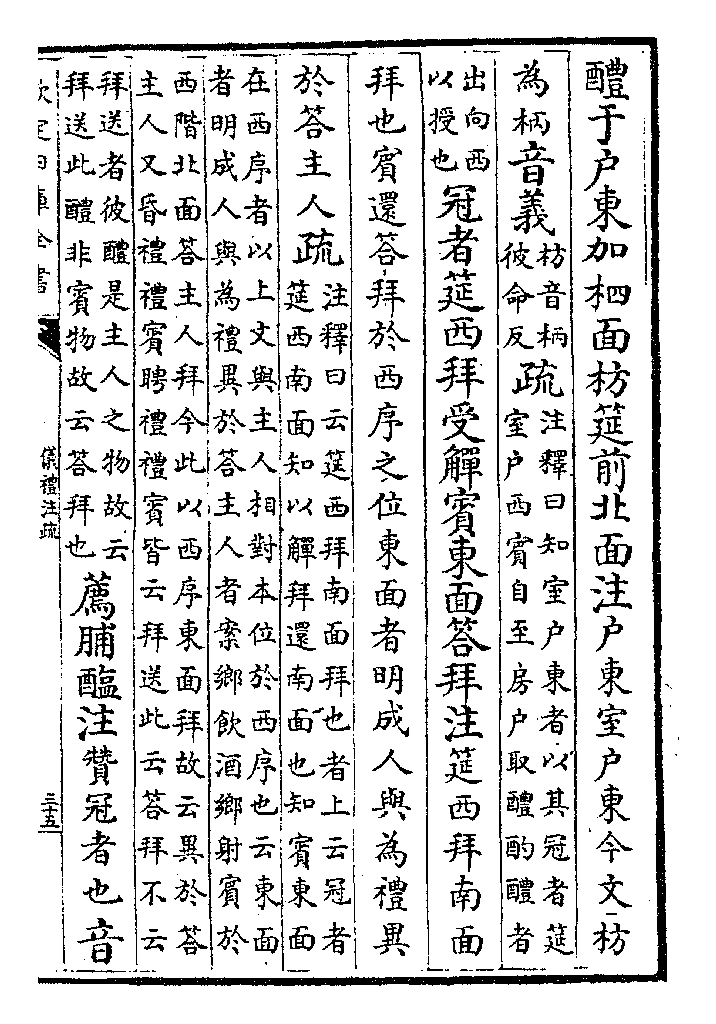 醴于户東加柶面枋筵前北面注户東室户東今文枋
為柄音義枋音柄彼命反疏注釋曰知室户東者以其冠者筵室户西賓自至房户取醴酌醴者
出向西以授也冠者筵西拜受觶賓東面答拜注筵西拜南面
拜也賓還答拜於西序之位東面者明成人與為禮異
於答主人疏注釋曰云筵西拜南面拜也者上云冠者筵西南面知以觶拜還南面也知賓東面
在西序者以上文與主人相對本位於西序也云東面
者明成人與為禮異於答主人者案鄉飲酒鄉射賓於
西階北面答主人拜今此以西序東面拜故云異於答
主人又昏禮禮賓聘禮禮賓皆云拜送此云答拜不云
拜送者彼醴是主人之物故云拜送此醴非賓物故云答拜也薦脯醢注贊冠者也音
欽定四庫全書
儀禮注疏
三十五